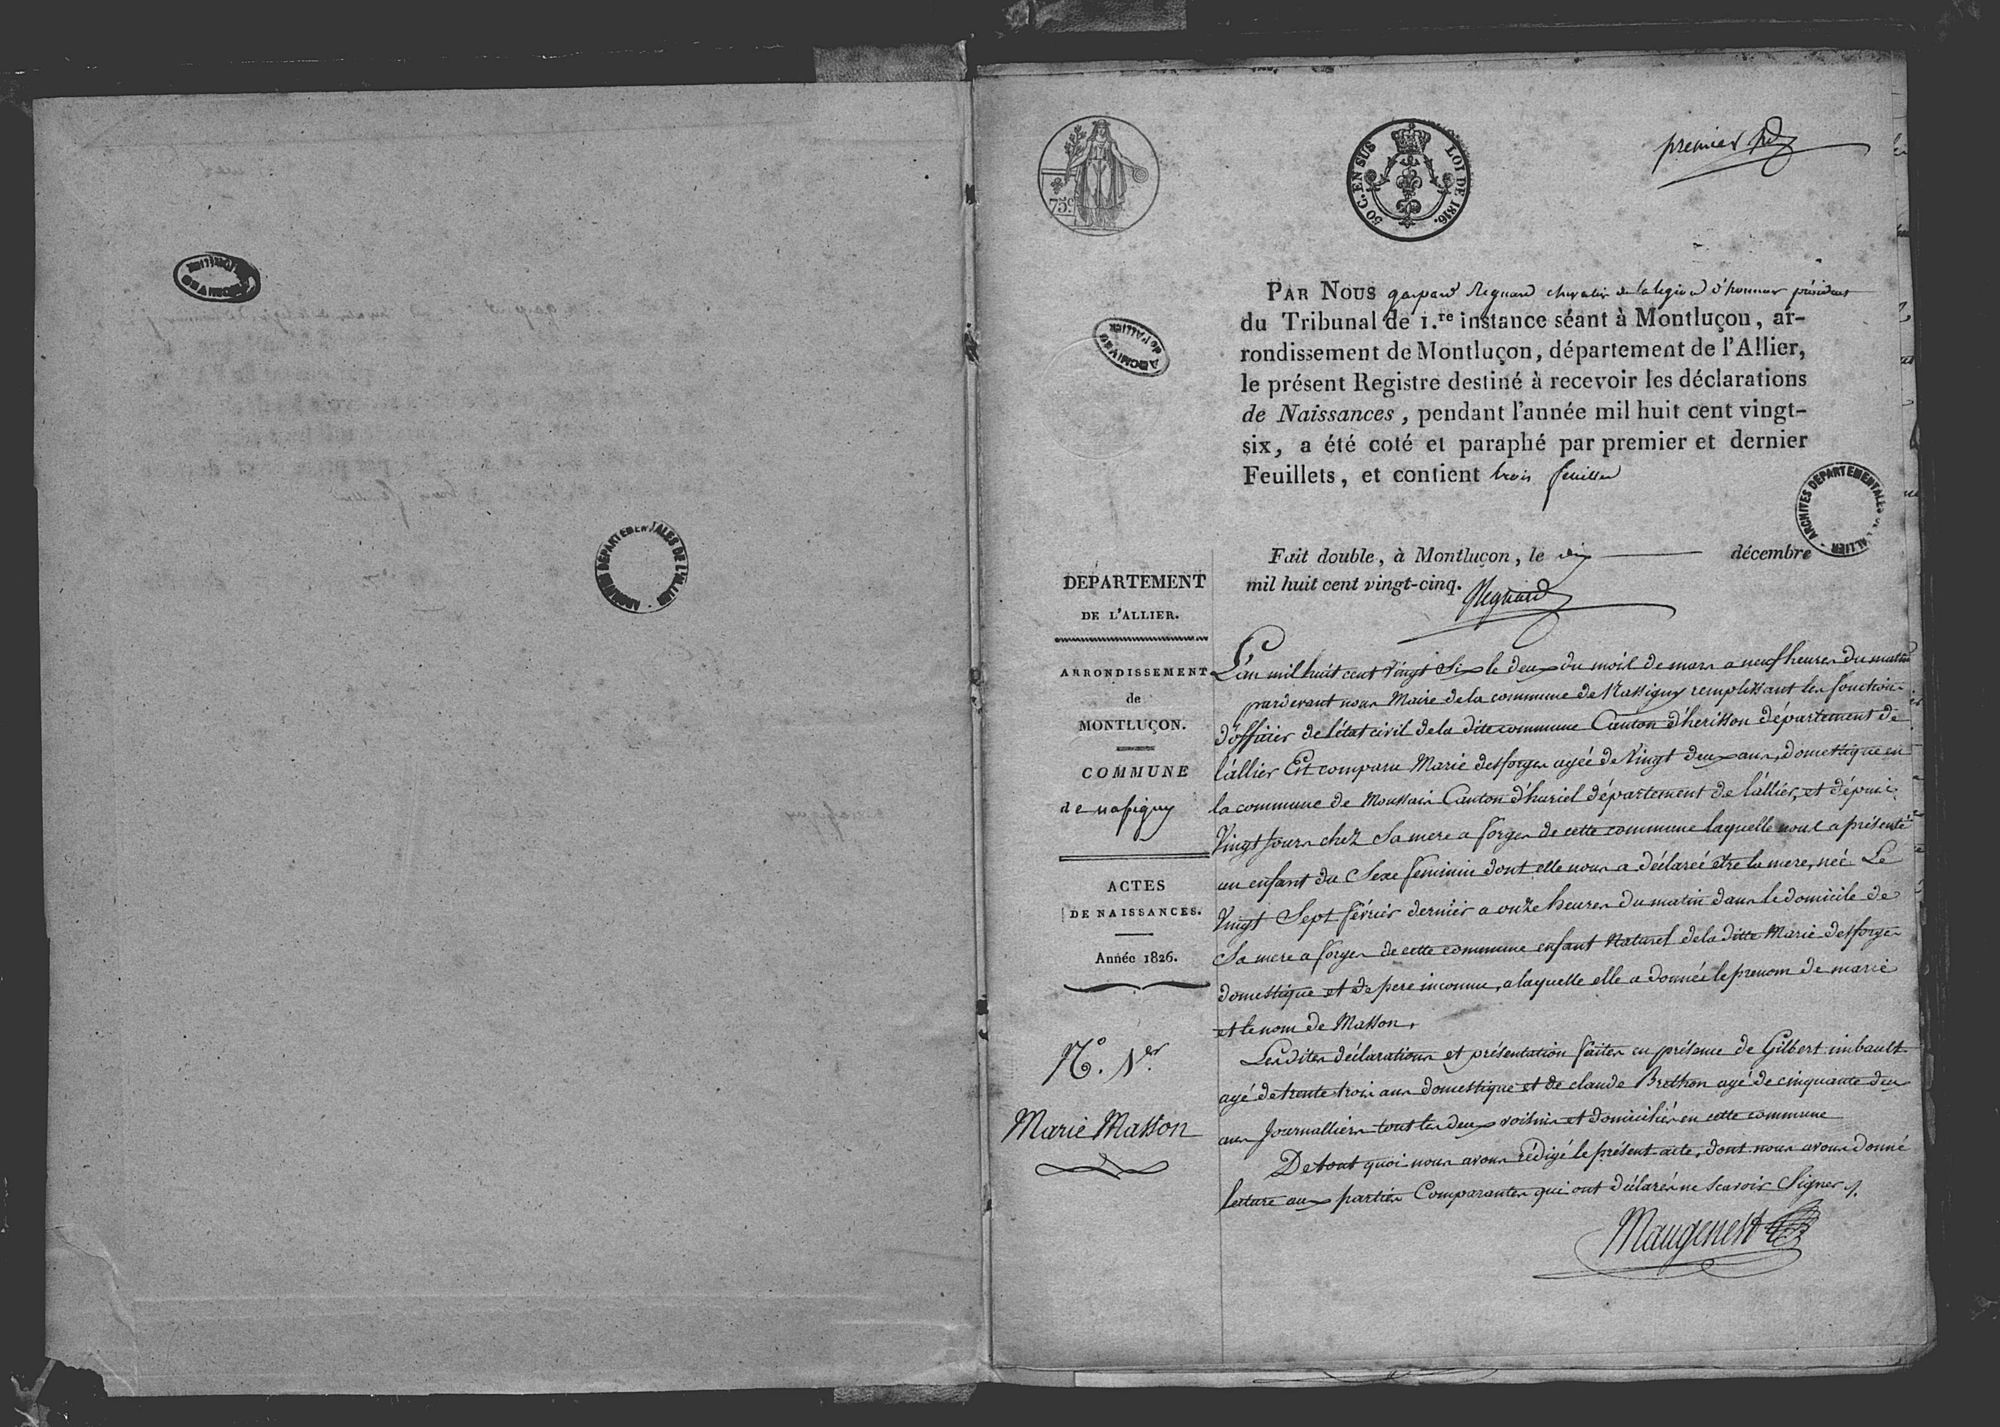 premier
75c.
50 C. EN SUS LOI DE 1816.
ARCHIVES de l'ALLIER
ARCHIVES
ARCHIVES DÉPARTEMENTALES DE L'ALLIER
PAR NOUS gaspard Regnard chevalier de la legion d'honneur président
du Tribunal de 1.re instance séant à Montluçon, ar-
rondissement de Montluçon, département de l'Allier,
le présent Registre destiné à recevoir les déclarations
de Naissances, pendant l'année mil huit cent vingt-
six, a été coté et paraphé par premier et dernier
Feuillets, et contient trois feuilles
ARCHIVES DEPARTEMENTALES DE L'ALLIER
Fait double, à Montluçon, le dix décembre
mil huit cent vingt-cinq.
Regnard
DÉPARTEMENT
DE L'ALLIER.
ARRONDISSEMENT
de
MONTLUÇON.
COMMUNE
de nassigny
ACTES
DE NAISSANCES.
Année 1826.
N.° 1er
Marie Masson
L'an mil huit cent vingt Six le deux du mois de mars a neuf heures du matin
pardevant nous Maire de la commune de Nassigny remplissant les fonctions
d'officier de l'état civil de la dite commune Canton d'herisson département de
l'allier Est comparu Marie desforges agée de vingt deux ans, domestique en
la commune de Canton d'huriel département de l'allier, et dépuis
vingt Jours chez Sa mere a forges de cette commune laquelle nous a présenté
un enfant du Sexe féminin dont elle nous a déclareé être la mere, neé Le
vingt Sept février dernier a onze heures du matin dans le domicile de
Sa mere a forges de cette commune enfant Naturel de la ditte Marie desforges
domestique et de pere inconnu, a laquelle elle a donnée le prenom de marie
et le nom de Masson.
Les dites déclarations et présentation faites en présence de Gilbert imbault
agé de trente trois ans domestique et de claude Brethon agé de cinquante deux
ans Journalliers tout les deux voisins et domiciliés en cette commune
De tout quoi nous avons rédigé le présent acte, dont nous avons donné
lecture aux parties Comparantes qui ont déclarés ne scavoir Signer
Maugenest